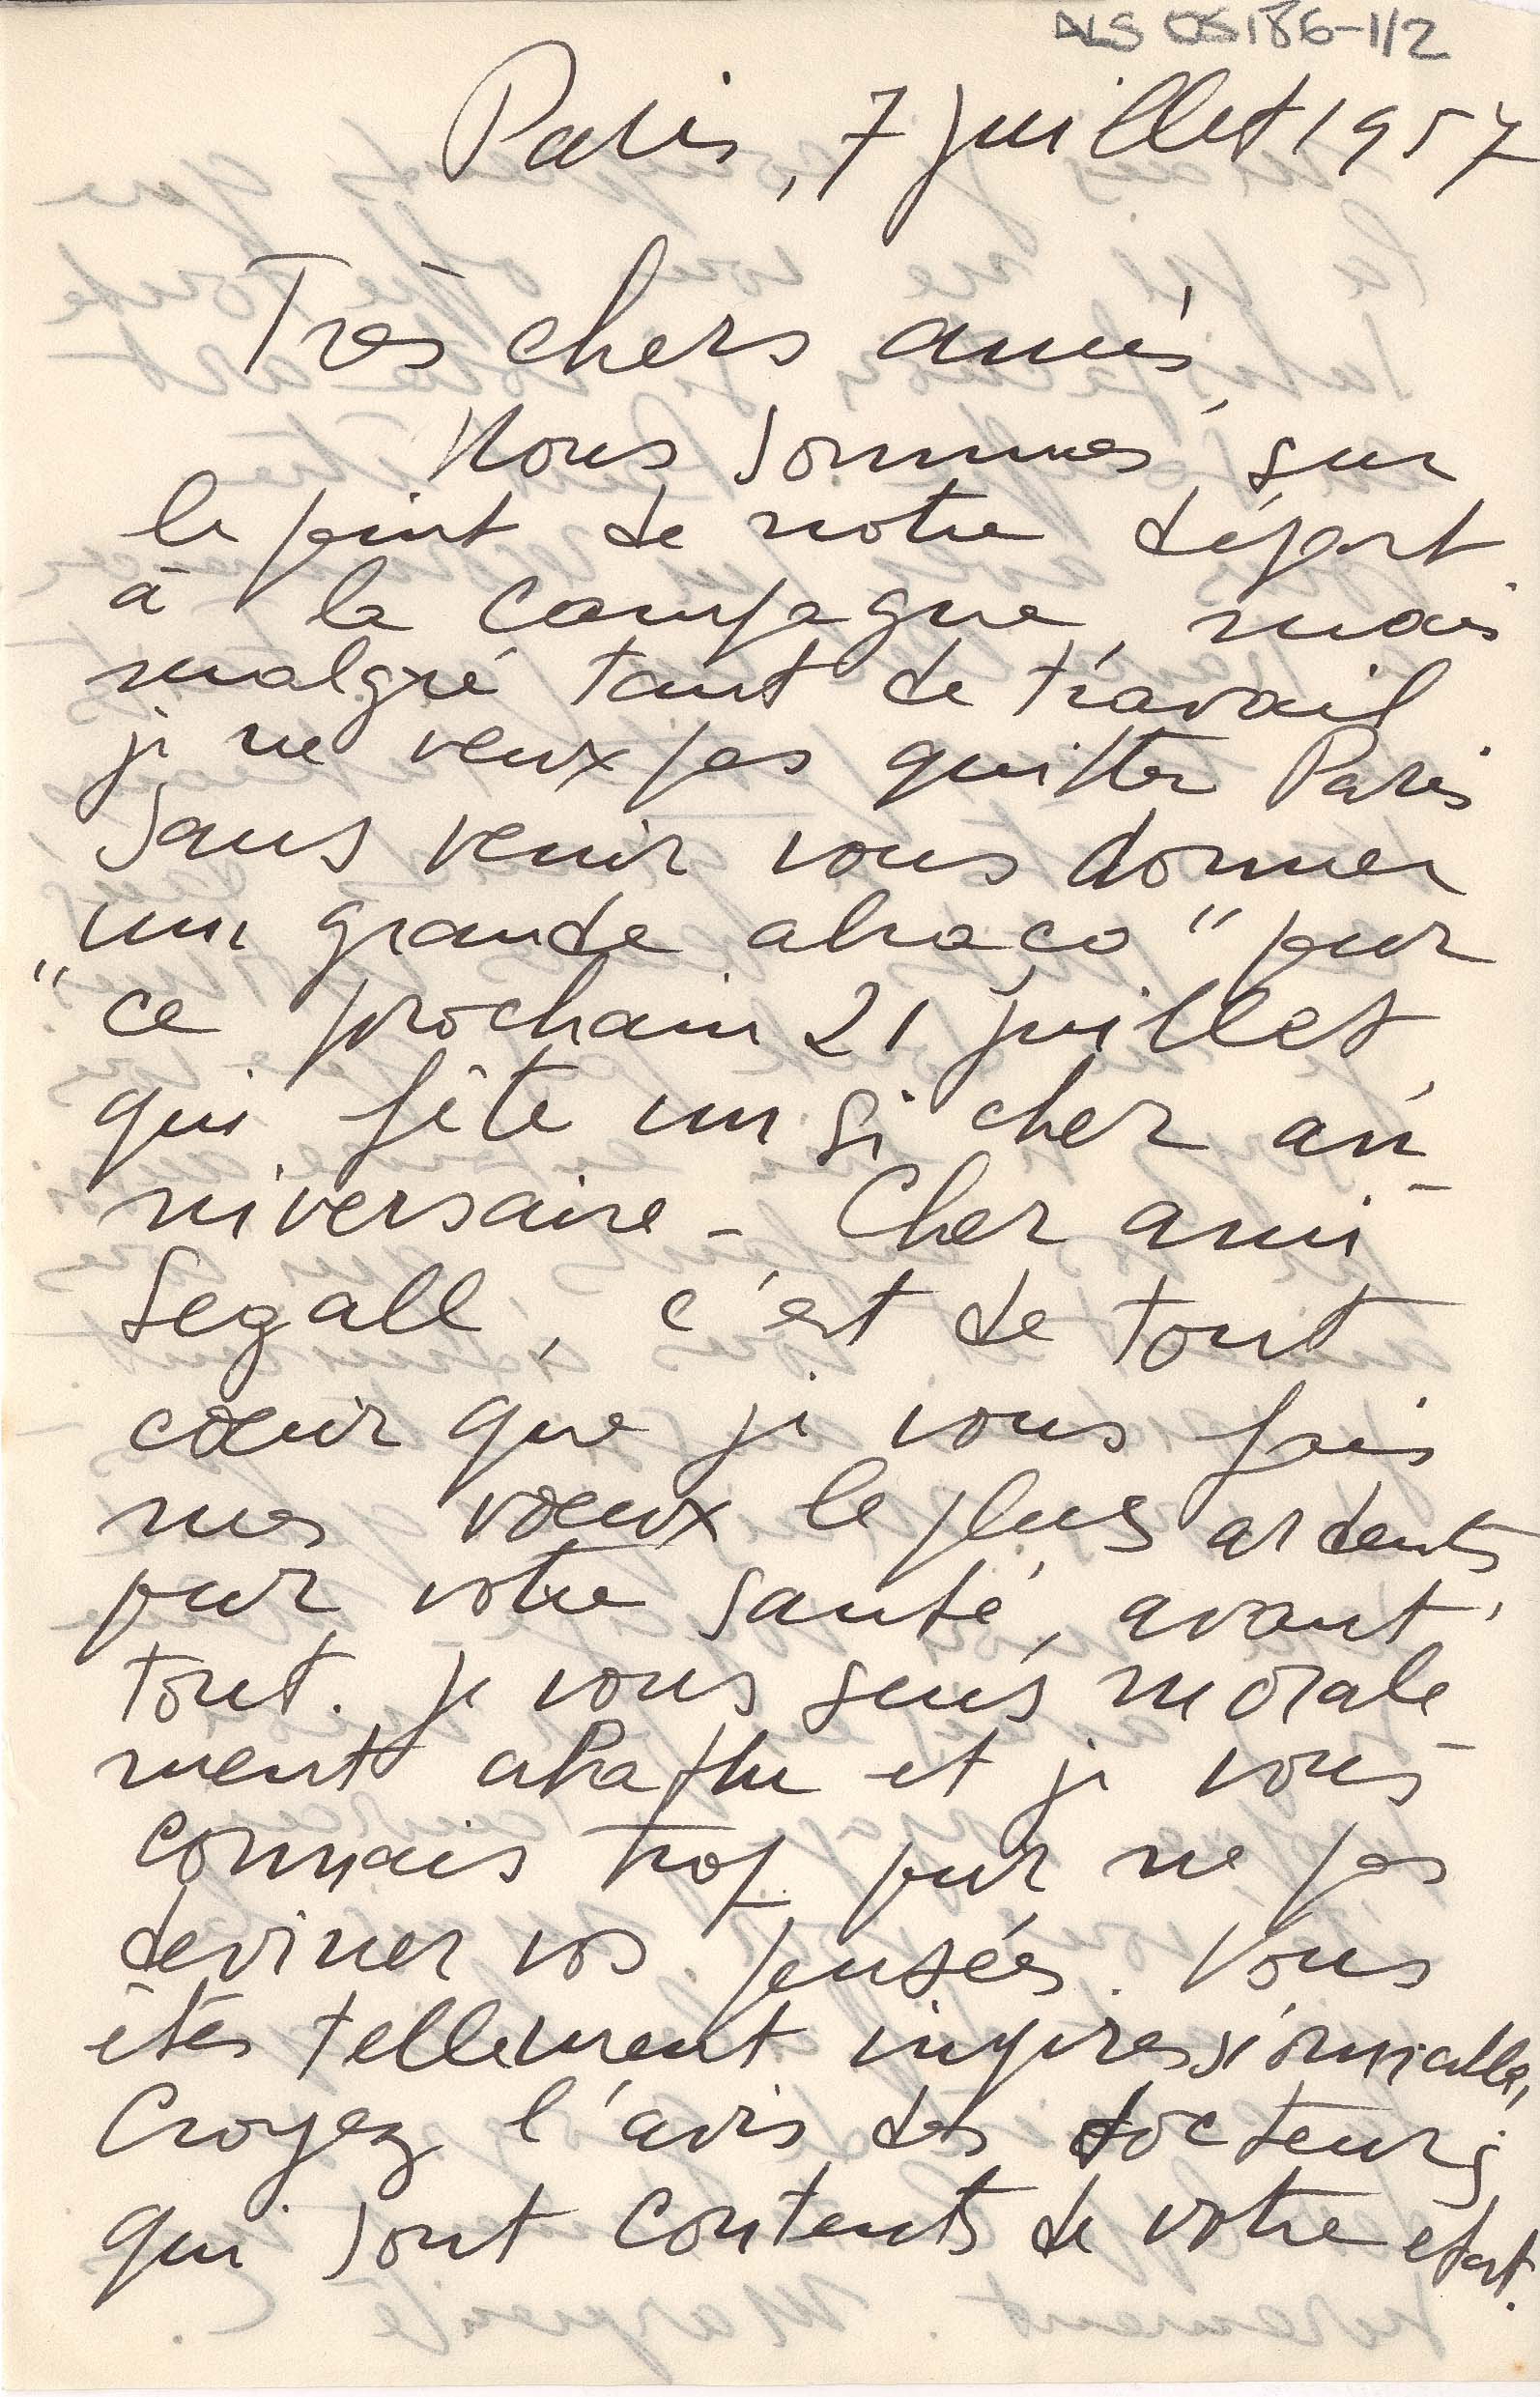 ALS 05186-1/2
Paris, 7 juillet 1957
Très chers amis,
Nous sommes sur
le point de notre départ
à la campagne, mais
malgré tant de travail
je ne veux pas quitter Paris
sans venir vous donner
"um grande abraço" pour
ce prochain 21 juillet
qui fête un si cher an-
niversaire - Cher ami
Segall, c'est de tout
cœur que je vous fais
mes vœux le plus ardents
pour votre santé, avant
tout. Je vous sens morale-
ment abattu et je vous
connais trop pour ne pas
deviner vos pensées. Vous
êtes tellement impressionnable,
Croyez l'avis des docteurs
qui sont contents de votre état.